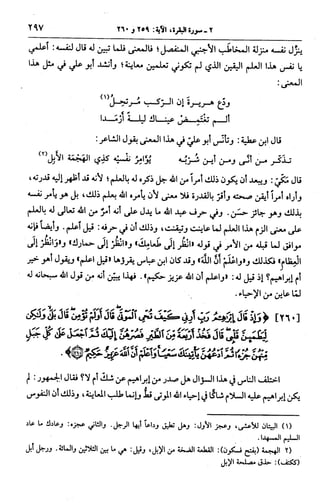 ٢ - سورة البقرة، الآية: ٢٥٩ و ٢٦٠
٢٩٧
ينزّل نفسه منزلة المخاطب الأجنبي المنفصل؛ فالمعنى فلما تبين له قال لنفسه: أعلمي
يا نفس هذا العلم اليقين الذي لم تكوني تعلمين معاينة؛ وأنشد أبو علي في مثل هذا
المعنى:
ودّع هريرة إن الركب مرتحل(١)
ألم تغتمض عيناك ليلة أرمدا
قال ابن عطية: وتأنس أبو عليّ في هذا المعنى بقول الشاعر:
تذكر من أنّى ومن أين شربُه    يؤامر نفسيْه كذي الهجمة الأبل(٢)
قال مكيّ: ويبعد أن يكون ذلك أمراً من الله جل ذكره له بالعلم؛ لأنه قد أظهر إليه قدرته،
وأراه أمراً أيقن صحته وأقر بالقدرة فلا معنى لأن يأمره الله بعلم ذلك، بل هو يأمر نفسه
بذلك وهو جائز حسن. وفي حرف عبد الله ما يدل على أنه أمر من الله تعالى له بالعلم
على معنى الزم هذا العلم لما عاينت وتيقنت، وذلك أن في حرفه: قيل أعلم. وأيضاً فإنه
موافق لما قبله من الأمر في قوله «انْظُرْ إلَى طَعَامِكَ» و«انْظُرْ إلَى حمارك» و«وَانْظُرْ إلَى
العِظَامِ» فكذلك و«وَاعْلَمْ أَنَّ اللَّهَ» وقد كان ابن عباس يقرؤها «قيل اعلم» ويقول أهو خير
أم إبراهيم؟ إذ قيل له: «واعلم أن الله عزيز حكيم». فهذا يبيّن أنه من قول الله سبحانه له
لمّا عاين من الإحياء.
[٢٦٠] ﴿وَإِذْ قَالَ إِبْرَاهِيمُ رَبِّ أَرِنِي كَيْفَ تُحْيِي الْمَوْتَى قَالَ أَوَلَمْ تُؤْمِنْ قَالَ بَلَى وَلَكِنْ
لِيَطْمَئِنَّ قَلْبِي قَالَ فَخُذْ أَرْبَعَةً مِنَ الطَّيْرِ فَصُرْهُنَّ إِلَيْكَ ثُمَّ اجْعَلْ عَلَى كُلِّ جَبَلٍ
مِنْهُنَّ جُزْءًا ثُمَّ ادْعُهُنَّ يَأْتِينَكَ سَعْيًا وَاعْلَمْ أَنَّ اللَّهَ عَزِيزٌ حَكِيمٌ ﴾.
اختلف الناس في هذا السؤال هل صدر من إبراهيم عن شك أم لا؟ فقال الجمهور: لم
يكن إبراهيم عليه السلام شاكًا في إحياء الله الموتى قط وإنما طلب المعاينة، وذلك أن النفوس
(١) البيتان للأعشى، وعجز الأول: وهل تطيق وداعاً أيها الرجل. والثاني عجزه: وعادك ما عاد
السليم المسهدا.
(٢) الهجمة (بفتح فسكون): القطعة الضخمة من الإبل، وقيل: هي ما بين الثلاثين والمائة. ورجل أبل
(ككتف): حذق مصلحة الإبل